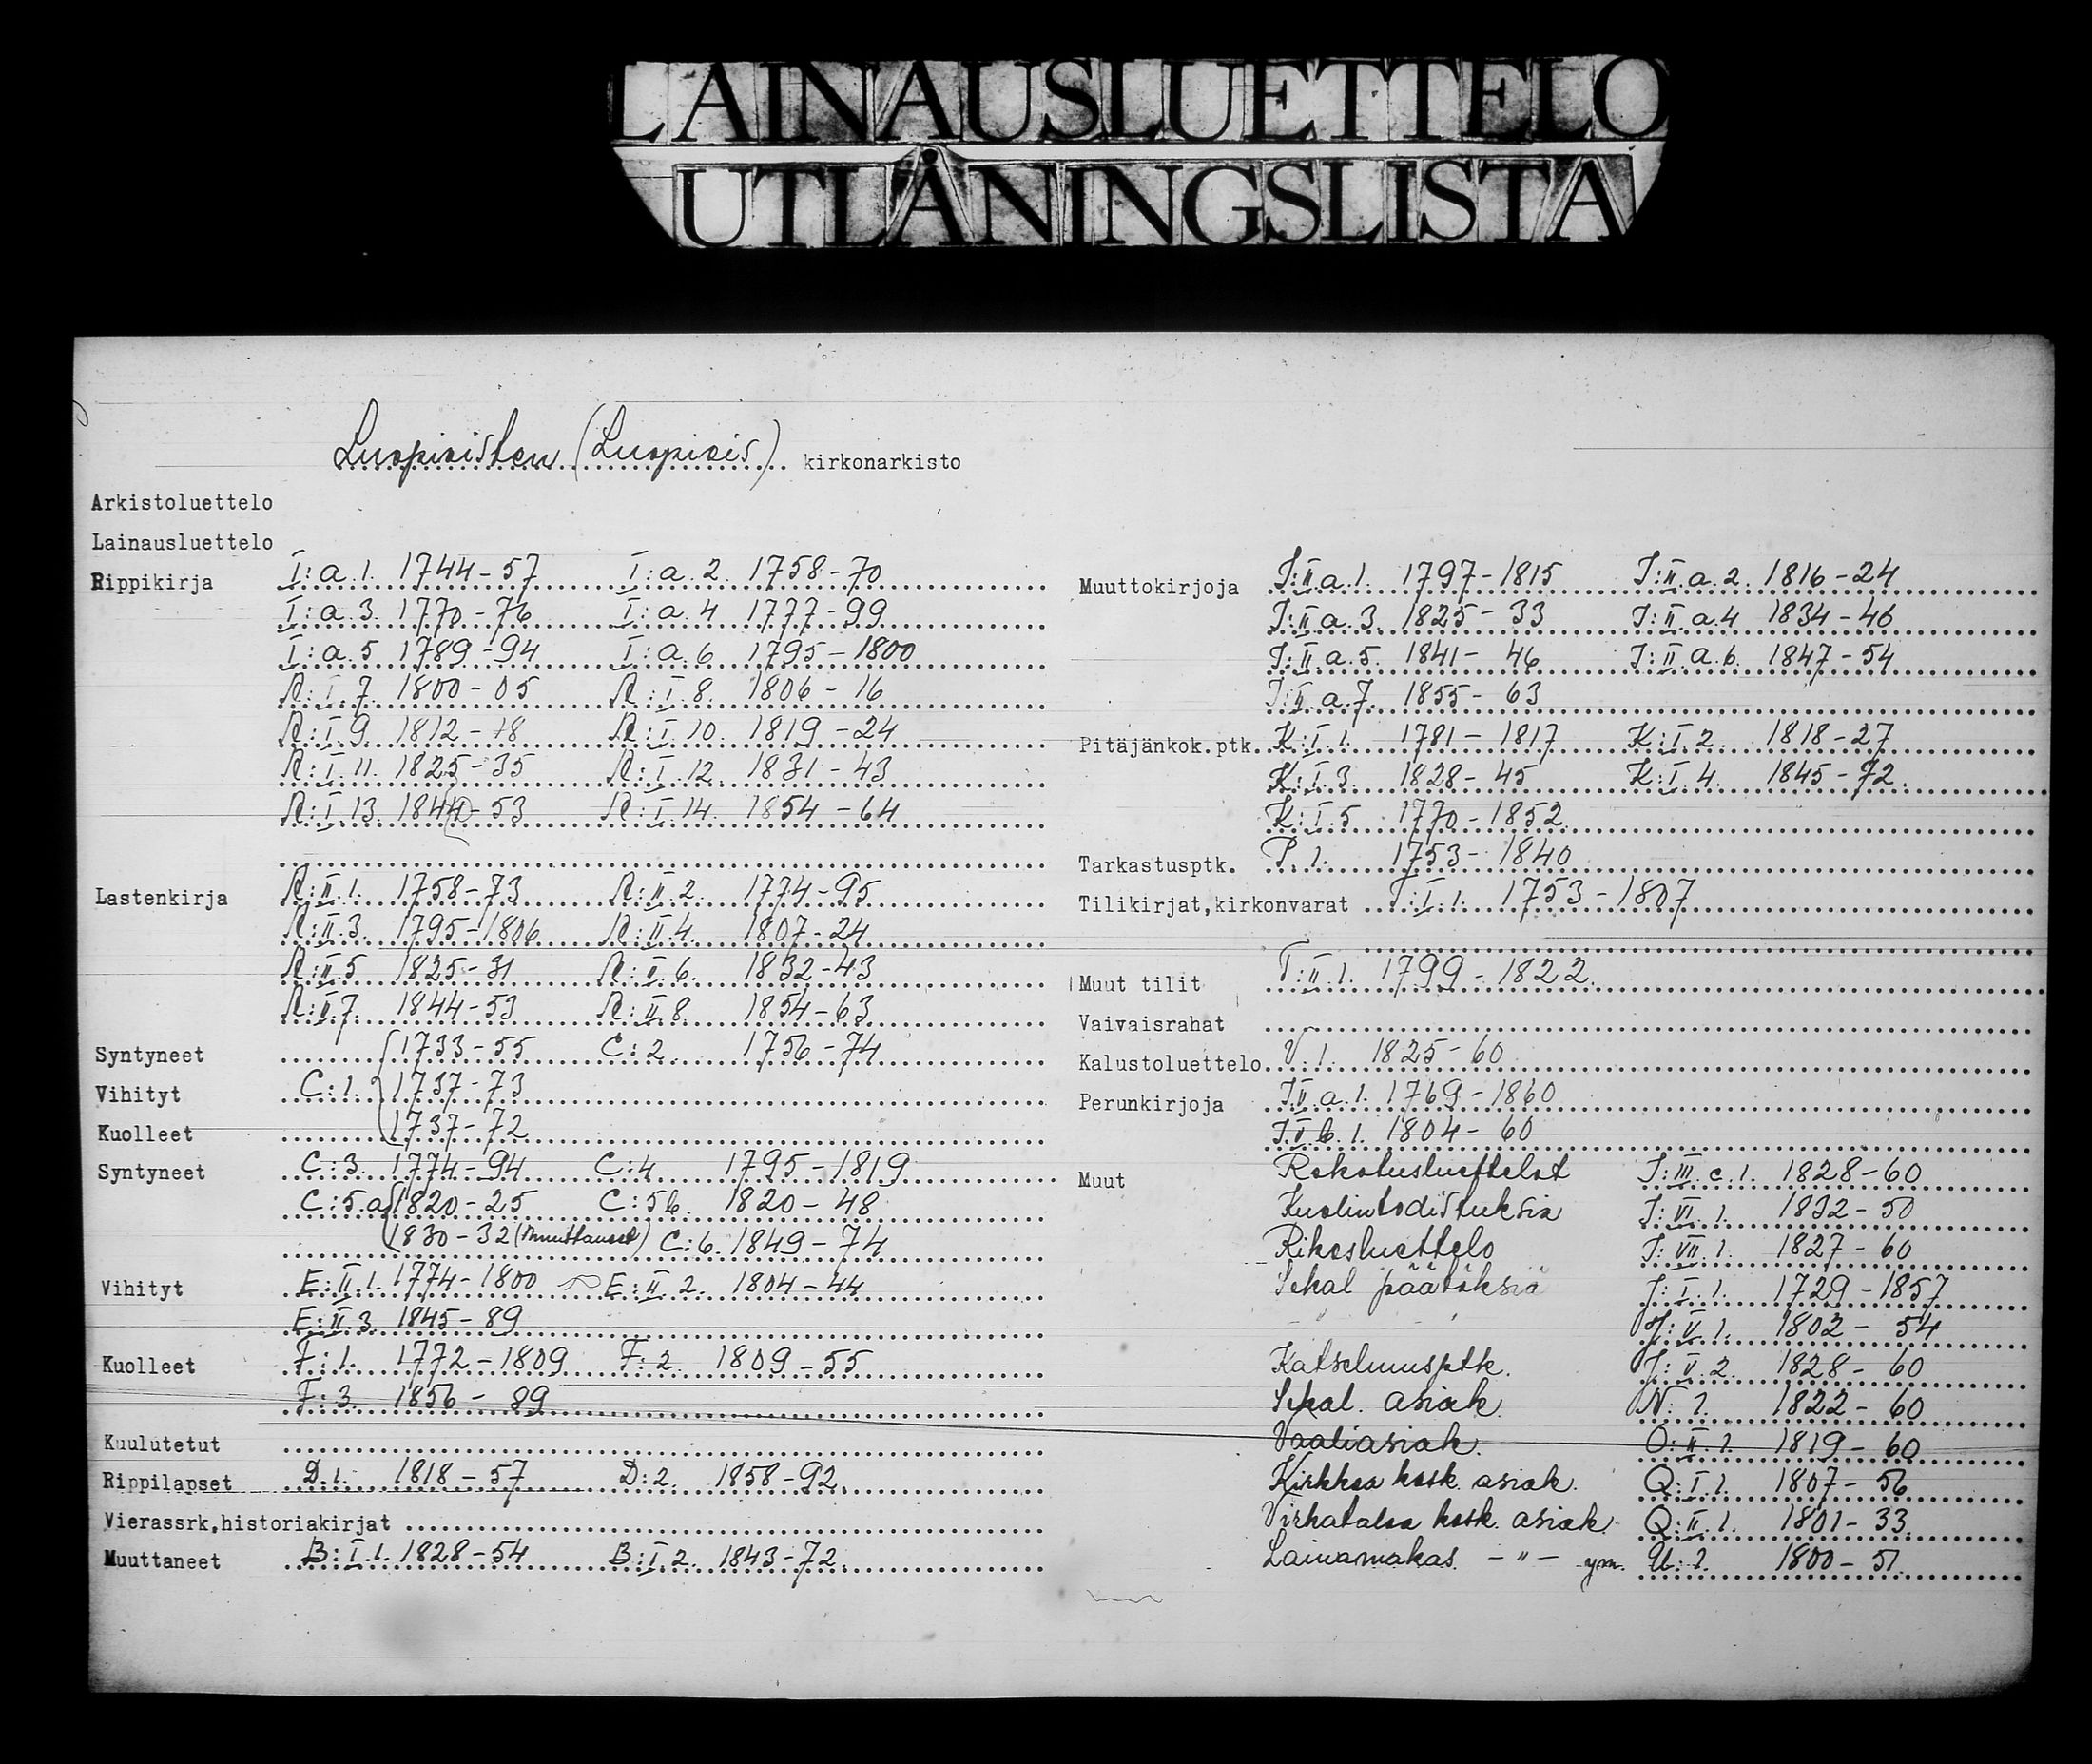 LAINAUSLUETTELO
UTLÅNINGSLISTA
Luopioisten (Luopiois) kirkonarkisto
Arkistoluettelo
Lainausluettelo
Rippikirja I:a.1. 1744-57 I:a.2. 1758-70
I:a.3. 1770-76 I:a.4 1777-99
I:a.5 1789-94 I:a.6 1795-1800
R:I.7. 1800-05 R:I.8. 1806-16
R:I.9 1812-18 R:I.10. 1819-24
R:I.11. 1825-35 R:I.12. 1831-43
R:I.13. 1844-53 R:I.14. 1854-64
Lastenkirja R:II.1. 1758-73 R:II.2. 1774-95
R:II.3. 1795-1806 R:II.4. 1807-24
R:II.5 1825-31 R:II.6. 1832-43
R:II.7. 1844-53 R:II.8. 1854-63
Syntyneet 1733-55 C:2. 1756-74
Vihityt C:1. 1737-73
Kuolleet 1737-72
Syntyneet C:3. 1774-94 C:4 1795-1819
C:5.a 1820-25 C:5b. 1820-48
1830-32 (muuttaneet) C:6. 1849-74
Vihityt E:II.1. 1774-1800 E:II.2. 1804-44
E:II.3. 1845-89
Kuolleet F:1. 1772-1809 F:2. 1809-55
F:3. 1856-89
Kuulutetut
Rippilapset D.1. 1818-57 D:2. 1858-92
Vierassrk,historiakirjat
Muuttaneet B:I.1. 1828-54 B:I.2. 1843-72
Muuttokirjoja J:II.a.1. 1797-1815 J:II.a.2. 1816-24
J:II.a.3. 1825-33 J:II.a.4 1834-46
J:II.a.5. 1841-46 J:II.a.6. 1847-54
J:II.a.7. 1855-63
Pitäjänkok.ptk. K:I.1. 1781-1817 K:I.2. 1818-27
K:I.3. 1828-45 K:I.4. 1845-72.
K:I.5 1770-1852
Tarkastusptk. P.1. 1753-1840
Tilikirjat,kirkonvarat T:I.1. 1753-1807
Muut tilit T:II.1. 1799-1822.
Vaivaisrahat
Kalustoluettelo V.1. 1825-60
Perunkirjoja J.V.a.1. 1769-1860
J.V.b.1. 1804-60
Muut Rokotusluettelot J:III.c.1. 1828-60
Kuolintodistuksia J:VI.1. 1832-50
Rikosluettelo J:VII.1. 1827-60
Sekal päätöksiä J:I.1. 1729-1857
J:V.1. 1802-54
Katselmusptk. J:V.2. 1828-60
Sekal. asiak. N:1. 1822-60
Vaaliasiak. O:II.1. 1819-60
Kirkkoa kosk. asiak. Q:I.1. 1807-56
Virkataloa kosk. asiak. Q:II.1. 1801-33.
Lainamakas. -"- ym. U:1. 1800-51.